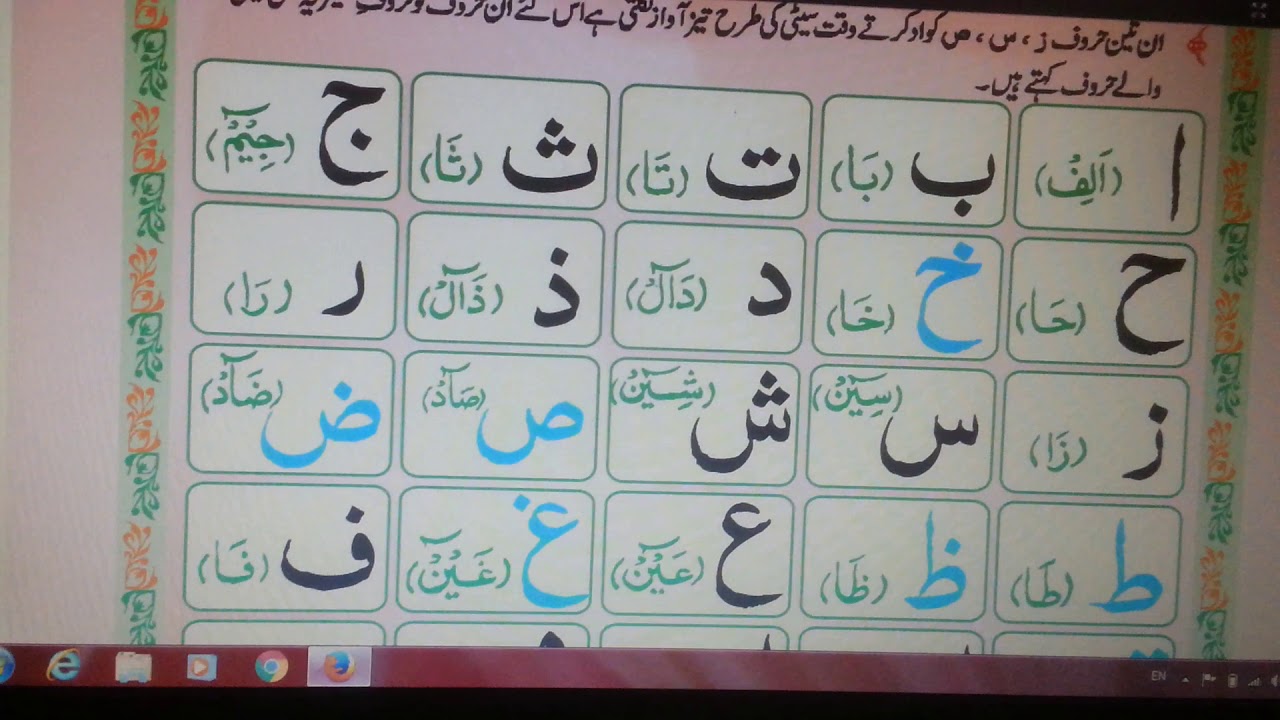 ان تین حروف ز ، س ، ص کو ادا کرتے وقت سیٹی کی طرح تیز آواز نکلتی ہے اس لئے ان حروف کو حروفِ
والے حروف کہتے ہیں۔
ا (اَلِفْ) ب (بَا) ت (تَا) ث (ثَا) ج (جِيْمْ)
ح (حَا) خ (خَا) د (دَالْ) ذ (ذَالْ) ر (رَا)
ز (زَا) س (سِيْنْ) ش (شِيْنْ) ص (صَادْ) ض (ضَادْ)
ط (طَا) ظ (ظَا) ع (عَيْنْ) غ (غَيْنْ) ف (فَا)
EN